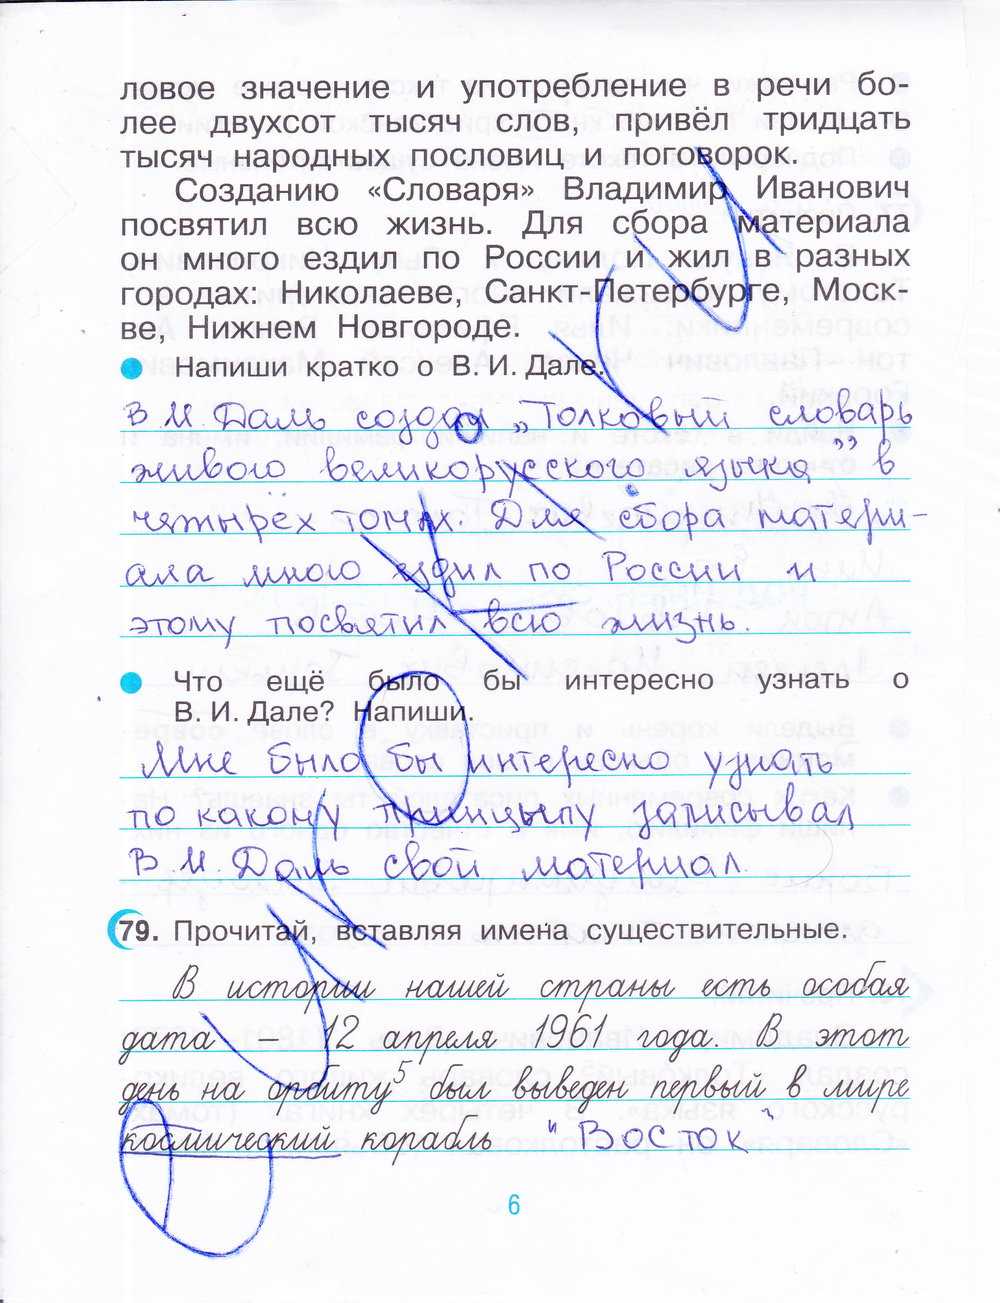 ловое значение и употребление в речи бо-
лее двухсот тысяч слов, привёл тридцать
тысяч народных пословиц и поговорок.
Созданию «Словаря» Владимир Иванович
посвятил всю жизнь. Для сбора материала
он много ездил по России и жил в разных
городах: Николаеве, Санкт-Петербурге, Моск-
ве, Нижнем Новгороде.
Напиши кратко о В. И. Дале.
В.И. Даль создал „Толковый словарь
живого великорусского языка” в
четырёх томах. Для сбора матери-
ала много ездил по России и
этому посвятил всю жизнь.
Что ещё было бы интересно узнать о
В. И. Дале? Напиши.
Мне было бы интересно узнать
по какому принцыпу записывал
В.И. Даль свой материал.
79. Прочитай, вставляя имена существительные.
В истории нашей страны есть особая
дата – 12 апреля 1961 года. В этот
день на орбиту⁵ был выведен первый в мире
космический корабль "Восток"
6